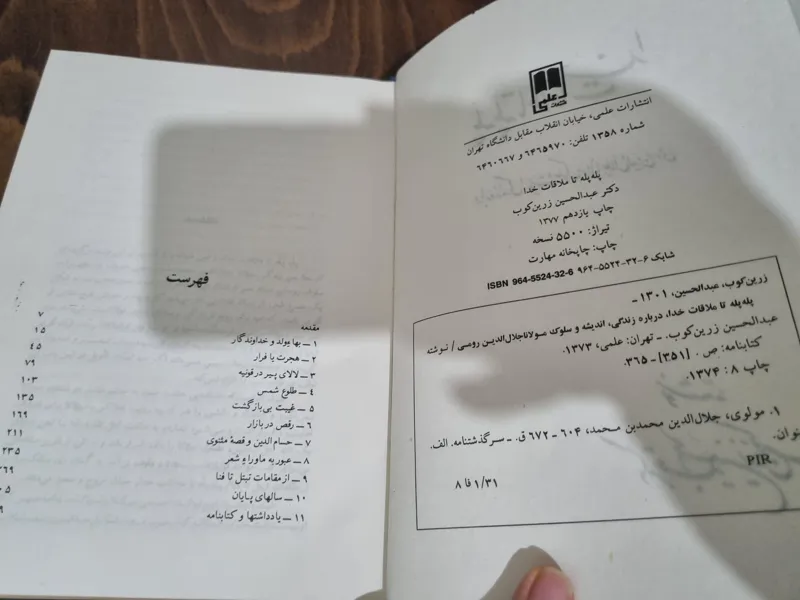 علمی
انتشارات علمی، خیابان انقلاب مقابل دانشگاه تهران
شماره ۱۳۵۸ تلفن: ۶۴۶۵۹۷۰ و ۶۴۶۰۶۶۷
پله‌پله تا ملاقات خدا
دکتر عبدالحسین زرین‌کوب
چاپ یازدهم ۱۳۷۷
تیراژ: ۵۵۰۰ نسخه
چاپ: چاپخانه مهارت
شابک ۶-۳۲-۵۵۲۴-۹۶۴ ISBN 964-5524-32-6
زرین‌کوب، عبدالحسین، ۱۳۰۱ -
پله‌پله تا ملاقات خدا، درباره زندگی، اندیشه و سلوک مولانا جلال‌الدین رومی / نوشته
عبدالحسین زرین‌کوب. ـ تهران: علمی، ۱۳۷۳.
کتابنامه: ص. [۳۵۱] ـ ۳۶۵.
چاپ ۸: ۱۳۷۴.
۱. مولوی، جلال‌الدین محمدبن محمد، ۶۰۴ ـ ۶۷۲ ق. ـ سرگذشتنامه. الف.
PIR
۸ فا ۱/۳۱
فهرست
مقدمه ۷
۱ ـ بهاءولد و خداوندگار ۱۵
۲ ـ هجرت یا فرار ۴۵
۳ ـ لالای پیر در قونیه ۷۹
۴ ـ طلوع شمس ۱۰۳
۵ ـ غیبت بی‌بازگشت ۱۳۵
۶ ـ رقص در بازار ۱۶۹
۷ ـ حسام‌الدین و قصهٔ مثنوی ۲۱۱
۸ ـ عبور به ماوراءِ شعر ۲۳۵
۹ ـ از مقامات تبتل تا فنا
۱۰ ـ سالهای پایان
۱۱ ـ یادداشتها و کتابنامه